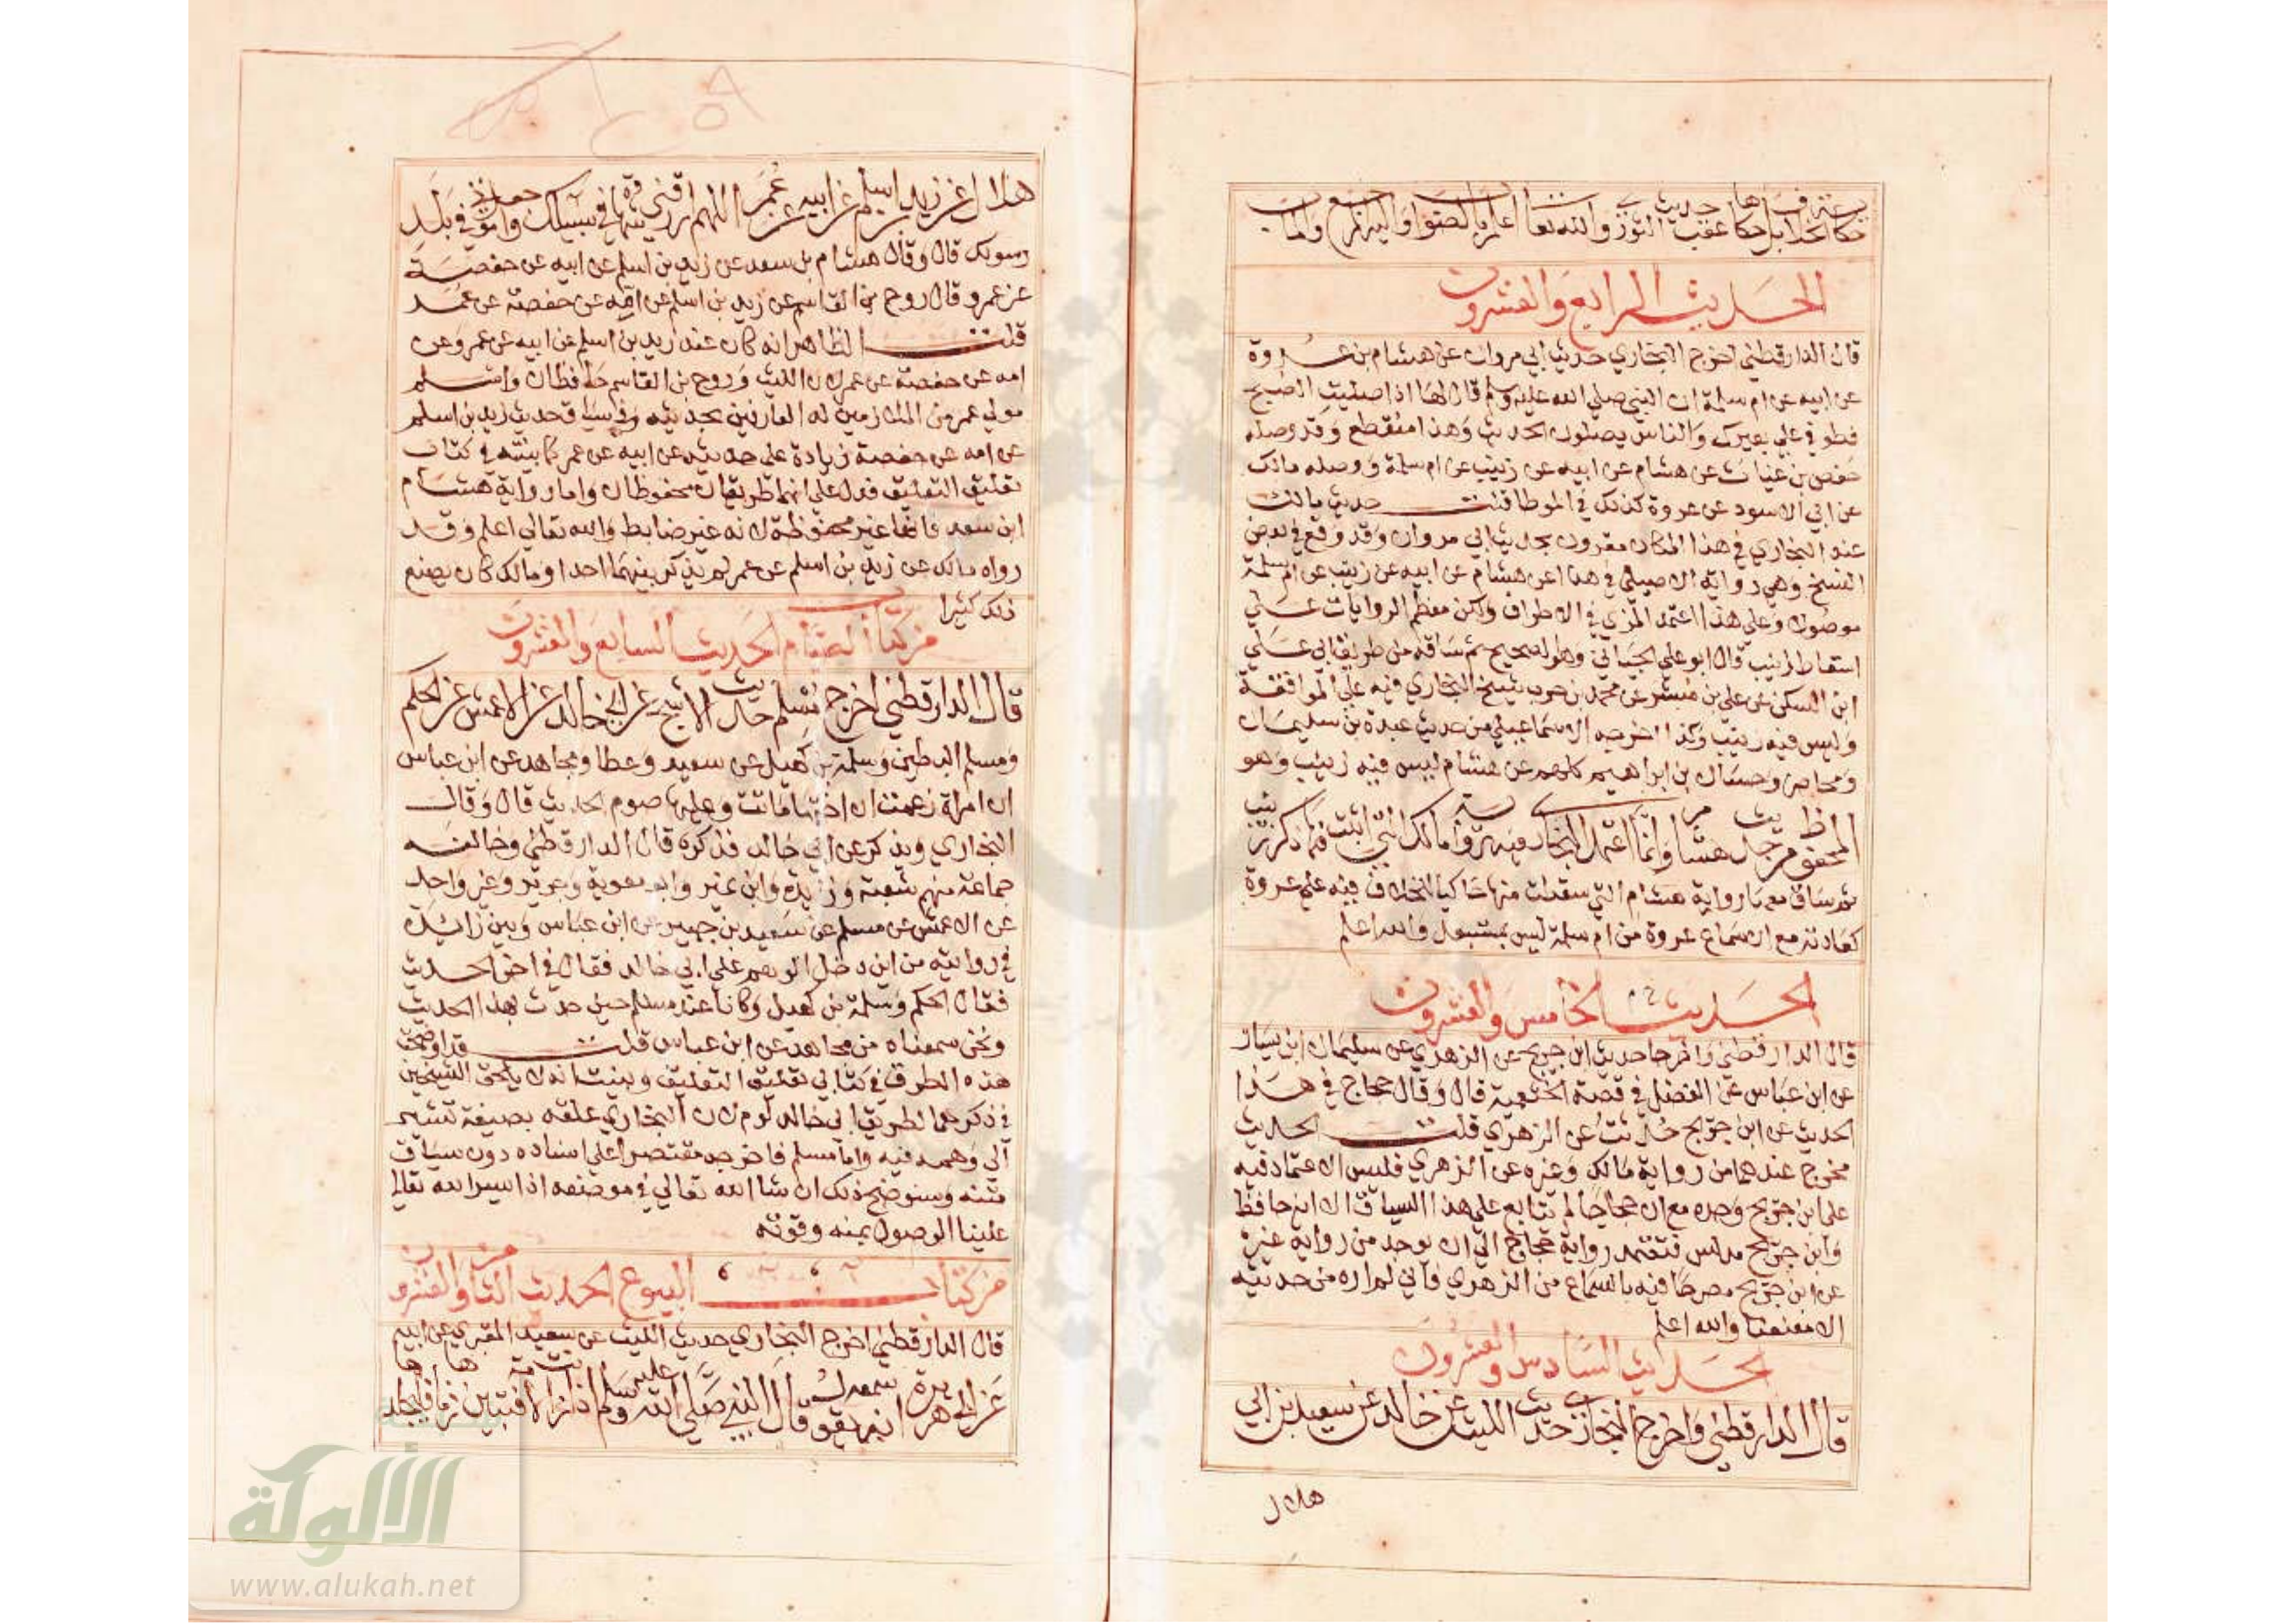 حكاية الخلاف فيها بل حكاها عقب حديث الثوري والله تعالى اعلم بالصواب واليه المرجع والمآب
الحديث الرابع والعشرون
قال الدارقطني اخرج البخاري حديث ابي مروان عن هشام بن عروة
عن ابيه عن ام سلمة ان النبي صلى الله عليه وسلم قال لها اذا صليت الصبح
فطوفي على بعيرك والناس يصلون الحديث وهذا منقطع وقد وصله
حفص بن غياث عن هشام عن ابيه عن زينب عن ام سلمة ووصله مالك
عن ابي الاسود عن عروة كذلك في الموطا قلت حديث مالك
عند البخاري في هذا المكان مقرون بحديث ابي مروان وقد وقع في بعض
النسخ وهي رواية الاصيلي في هذا عن هشام عن ابيه عن زينب عن ام سلمة
موصولا وعلى هذا اعتمد المزي في الاطراف ولكن معظم الروايات على
اسقاط زينب قال ابو علي الجياني وهو الصحيح ثم ساقه من طريق ابي علي
ابن السكن عن علي بن مبشر عن محمد بن حرب شيخ البخاري فيه على الموافقة
وليس فيه زينب وكذا اخرجه الاسماعيلي من حديث عبدة بن سليمان
ومحاضر وحسان بن ابراهيم كلهم عن هشام ليس فيه زينب وهو
المحفوظ من حديث هشام وانما اعتمد البخاري فيه رواية مالك التي اثبت فيها ذكر زينب
ثم ساق معها رواية هشام التي سقطت منها حاكيا للخلاف فيه على عروة
كعادته مع ان سماع عروة من ام سلمة ليس بمستبعد والله اعلم
الحديث الخامس والعشرون
قال الدارقطني واخرجا حديث ابن جريج عن الزهري عن سليمان ابن يسار
عن ابن عباس عن الفضل في قصة الخثعمية قال وقال حجاج في هذا
الحديث عن ابن جريج حدثت عن الزهري قلت الحديث
مخرج عندهما من رواية مالك وغيره عن الزهري فليس الاعتماد فيه
على ابن جريج وحده مع ان حجاجا لم يتابع على هذا السياق الا انه حافظ
وابن جريج مدلس فتعتمد رواية حجاج الى ان يوجد من رواية غيره
عن ابن جريج مصرحا فيه بالسماع من الزهري فاني لم اره من حديثه
الا معنعنا والله اعلم
الحديث السادس والعشرون
قال الدارقطني واخرج البخاري حديث الليث عن خالد عن سعيد بن ابي
هلال
هلال عن زيد بن اسلم عن ابيه عن عمر اللهم ارزقني قتلا في سبيلك وامتني في بلد
رسولك قال وقال هشام بن سعد عن زيد بن اسلم عن ابيه عن حفصة
عن عمر وقال روح بن القاسم عن زيد بن اسلم عن امه عن حفصة عن عمر
قلت الظاهر انه كان عند زيد بن اسلم عن ابيه عن عمر وعن
امه عن حفصة عن عمر لان الليث وروح بن القاسم حافظان واسلم
مولى عمر من الملازمين له العارفين بحديثه وفي سياق حديث زيد بن اسلم
عن امه عن حفصة زيادة على حديثه عن ابيه عن عمر كما بينته في كتاب
تغليق التعليق فدل على انهما طريقان محفوظان واما رواية هشام
ابن سعد فانها غير محفوظة لانه غير ضابط والله تعالى اعلم وقد
رواه مالك عن زيد بن اسلم عن عمر لم يذكر بينهما احدا ومالك كان يصنع
ذلك كثيرا
من كتاب الصيام الحديث السابع والعشرون
قال الدارقطني اخرج مسلم حديث الاشج عن ابي خالد عن الاعمش عن الحكم
ومسلم البطين وسلمة بن كهيل عن سعيد وعطا ومجاهد عن ابن عباس
ان امراة زعمت ان اختها ماتت وعليها صوم الحديث قال وقال
البخاري ويذكر عن ابي خالد فذكره قال الدارقطني وخالفه
جماعة منهم شعبة وزايدة وابن نمير وابو معوية وجرير وغير واحد
عن الاعمش عن مسلم عن سعيد بن جبير عن ابن عباس وبين زائدة
في روايته من اين دخل الوهم على ابي خالد فقال في اخر الحديث
فقال الحكم وسلمة بن كهيل وكانا عند مسلم حين حدث بهذا الحديث
ونحن سمعناه من مجاهد عن ابن عباس قلت قد اوضحت
هذه الطرق في كتابي تغليق التعليق وبينت انه لا يلحق الشيخين
في ذكرهما لطريق ابي خالد لوم لان البخاري علقه بصيغة تشير
الى وهمه فيه واما مسلم فاخرجه مقتصرا على اسناده دون سياق
متنه وسنوضح ذلك ان شا الله تعالى في موضعه اذا يسر الله تعالى
علينا الوصول بمنه وقوته
من كتاب البيوع الحديث الثامن والعشرون
قال الدارقطني اخرج البخاري حديث الليث عن سعيد المقبري عن ابيه
عن ابي هريرة انه سمعه يقول قال النبي صلى الله عليه وسلم اذا زنت الامة فتبين زناها فليجلدها
الألوكة
www.alukah.net